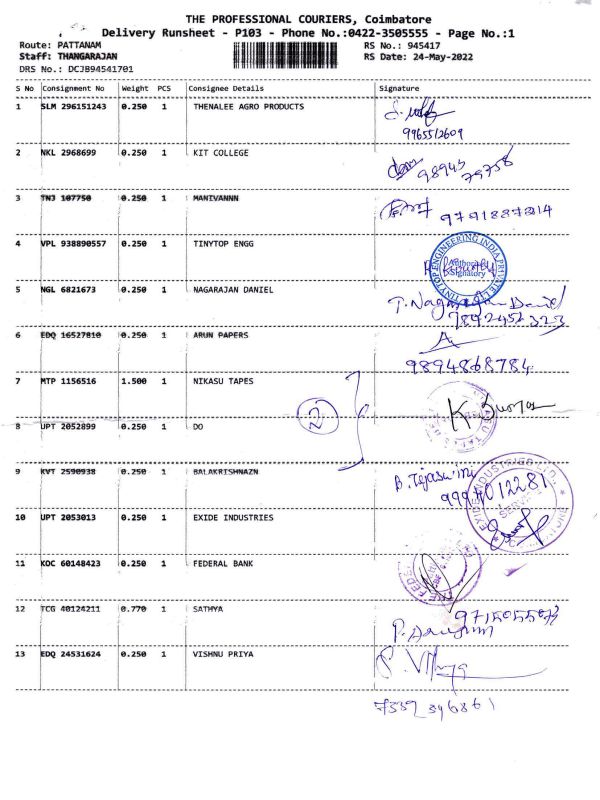 THE PROFESSIONAL COURIERS, Coimbatore
Delivery Runsheet - P103 - Phone No.:0422-3505555 - Page No.:1
Route: PATTANAM RS No.: 945417
Staff: THANGARAJAN RS Date: 24-May-2022
DRS No.: DCJB94541701
S No Consignment No Weight PCS Consignee Details Signature
1 SLM 296151243 0.250 1 THENALEE AGRO PRODUCTS
9965512609
2 NKL 2968699 0.250 1 KIT COLLEGE
98945 79758
3 TNJ 107750 0.250 1 MANIVANNN
9791887214
4 VPL 938890557 0.250 1 TINYTOP ENGG
TINYTOP ENGINEERING INDIA PRIVATE
Authorised Signatory
5 NGL 6821673 0.250 1 NAGARAJAN DANIEL
T. Nagarajan Daniel
7892452323
6 EDQ 16527810 0.250 1 ARUN PAPERS
9894868784
7 MTP 1156516 1.500 1 NIKASU TAPES
2
8 UPT 2052899 0.250 1 DO
9 KVT 2590938 0.250 1 BALAKRISHNAZN
B. Tejaswini
10 UPT 2053013 0.250 1 EXIDE INDUSTRIES
EXIDE INDUSTRIES LTD.
11 KOC 60148423 0.250 1 FEDERAL BANK
12 TCG 40124211 0.770 1 SATHYA
9715055073
13 EDQ 24531624 0.250 1 VISHNU PRIYA
7339 396861